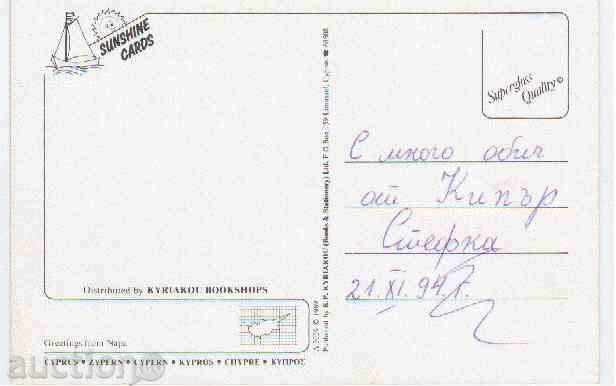 SUNSHINE
CARDS
Superglacc
Quality
С много обич
от Кипър
Стефка
21.XI.94 г.
Distributed by KYRIAKOU BOOKSHOPS
Greetings from Napa
CYPRUS • ZYPERN • CYPERN • KYPROS • CHYPRE • ΚΥΠΡΟΣ
© 1989
Produced by K.P. KYRIAKOU (Books & Stationery) Ltd. P.O.Box 159 Limassol, Cyprus
auction